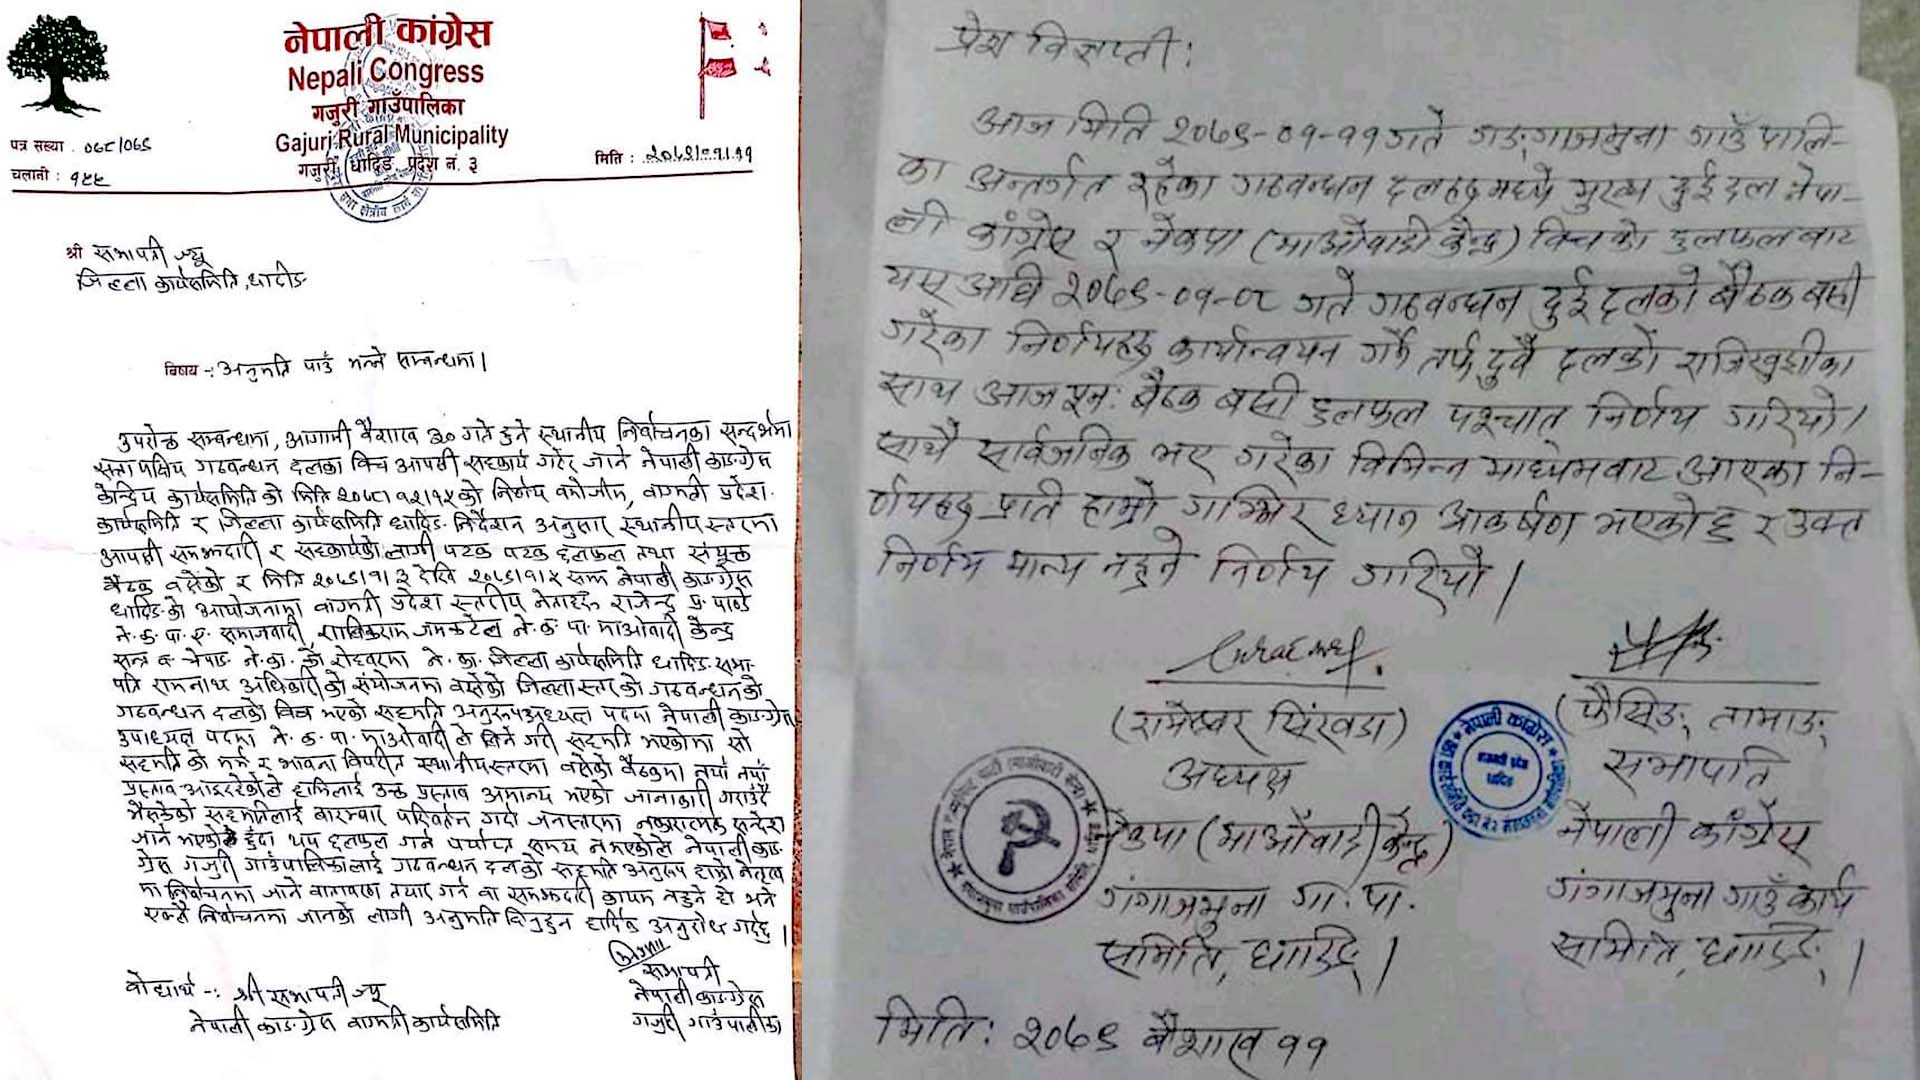 नेपाली कांग्रेस
Nepali Congress
गजुरी गाउँपालिका
Gajuri Rural Municipality
गजुरी, धादिङ प्रदेश नं. ३
पत्र सख्या . ०७८/०७९
मिति : २०७९।०१।११
चलानी : १९९
श्री सभापती ज्यू
जिल्ला कार्यसमिति, धादीङ
विषय -: अनुमति पाउँ भन्ने सम्बन्धमा।
उपरोक्त सम्बन्धमा, आगामी बैशाख ३० गते हुने स्थानीय निर्वाचनका सन्दर्भमा
सत्ता पक्षिय गठवन्धन दलका विच आपसी सहकार्य गरेर जाने नेपाली काङग्रेस
केन्द्रिय कार्यसमिति को मिति २०७८।१२।१५ को निर्णय वमोजीम, वागमती प्रदेश
कार्यसमिति र जिल्ला कार्यसमिति धादिङ निर्देशन अनुसार स्थानीयस्तरमा
आपसी समझदारी र सहकार्यको लागी पटक पटक छलफल तथा संयुक्त
बैठक वसेको र मिति २०७९।१।३ देखि २०७९।१।५ सम्म नेपाली काङग्रेस
धादिङको आयोजनामा वागमती प्रदेश स्तरीय नेताहरु राजेन्द्र प्र. पाण्डे
ने. क. पा. ए. समाजवादी, शालिकराम जमकटेल ने. क. पा. माओवादी केन्द्र
ने. का. जिल्ला कार्यसमिति धादिङ सभा-
पति रामनाथ अधिकारीको संयोजनमा वसेको जिल्लास्तरको गठवन्धनको
गठवन्धन दलको विच भएको सहमति अनुरुप अध्यक्ष पदमा नेपाली काङग्रेस
उपाध्यक्ष पदमा ने. क. पा. माओवादी ले लिने गरी सहमति भएकोमा सो
सहमति को मर्म र भावना विपरीत स्थानीयस्तरमा वसेको बैठकमा नयाँ नयाँ
प्रस्ताव आइरहेकोले हामीलाई उक्त प्रस्ताव अमान्य भएको जानाकारी गराउँदै
भैसकेको सहमतिलाई बारम्बार परिवर्तन गर्दा जनस्तरमा नकारात्मक सन्देश
जाने भएको हुँदा थप छलफल गर्न पर्याप्त समय नभएकोले नेपाली काङ-
ग्रेस गजुरी गाउँपालिकालाई गठवन्धन दलको सहमति अनुरुप हाम्रो नेतृत्व
मा निर्वाचनमा जाने वातावरण तयार गर्न वा समझदारी कायम नहुने हो भने
एक्लै निर्वाचनमा जानको लागी अनुमति दिनुहुन हार्दिक अनुरोध गर्दछु।
सभापती
नेपाली काङग्रेस
गजुरी गाउँपालीका
वोधार्थ -: श्री सभापती ज्यू
नेपाली काङग्रेस वागमती कार्यसमिति
प्रेश विज्ञप्ती:
आज मिति २०७९-०१-११ गते गङ्गाजमुना गाउँ पालि-
का अन्तर्गत रहेका गठवन्धन दलहरु मध्ये मुख्य दुई दल नेपा-
ली कांग्रेस र नेकपा (माओवादी केन्द्र) विचको छलफल बाट
यस अघि २०७९-०१-०८ गते गठवन्धन दुई दलको बैठक बसी
गरेका निर्णयहरु कार्यान्वयन गर्ने तर्फ दुवै दलको राजिखुशीका
साथ आज पुन: बैठक बसी छलफल पश्चात निर्णय गरियो।
साथै सार्वजनिक भए गरेका विभिन्न माध्यमबाट आएका नि-
र्णयहरु प्रति हाम्रो गम्भिर ध्यान आकर्षण भएको छ र उक्त
निर्णय मान्य नहुने निर्णय गरियो।
(रामेश्वर सिंखडा)
अध्यक्ष
नेकपा (माओवादी केन्द्र)
गंगाजमुना गा. पा.
समिति, धादिङ।
(फैसिङ तामाङ)
सभापति
नेपाली कांग्रेस
गंगाजमुना गाउँ कार्य
समिति, धादिङ।
मिति: २०७९ बैशाख ११